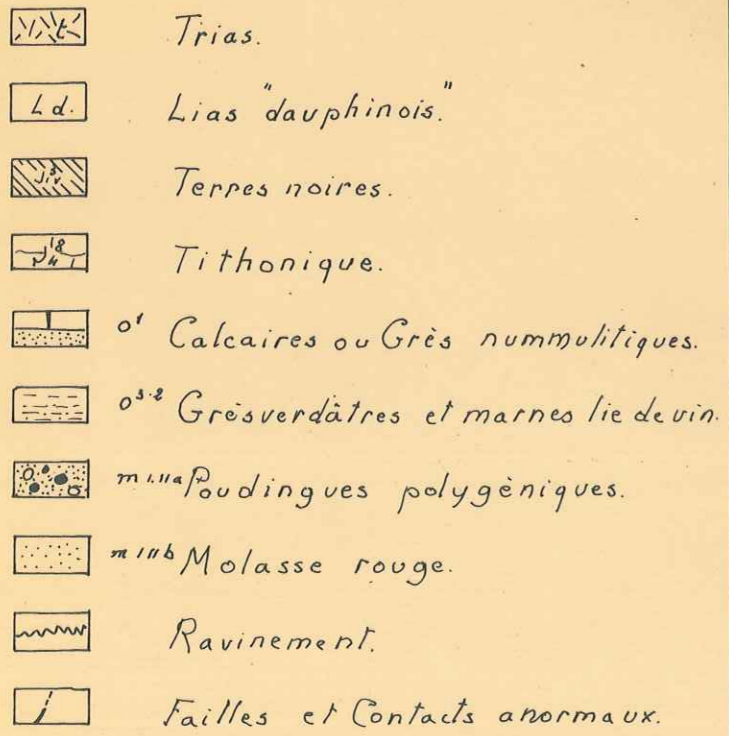 t Trias.
L d. Lias "dauphinois."
Terres noires.
Tithonique.
o¹ Calcaires ou Grès nummulitiques.
o³⁻² Grès verdâtres et marnes lie de vin.
m I.IIa Poudingues polygèniques.
m I IIb Molasse rouge.
Ravinement.
Failles et Contacts anormaux.